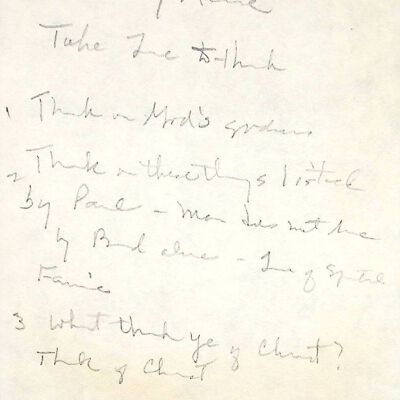 Take Time to Think
1 Think on God's goodness
2 Think on these things listed
by Paul - Man does not live
by Bread alone - Time of Spiritual
Famine
3 What think ye of Christ?
Think of Christ